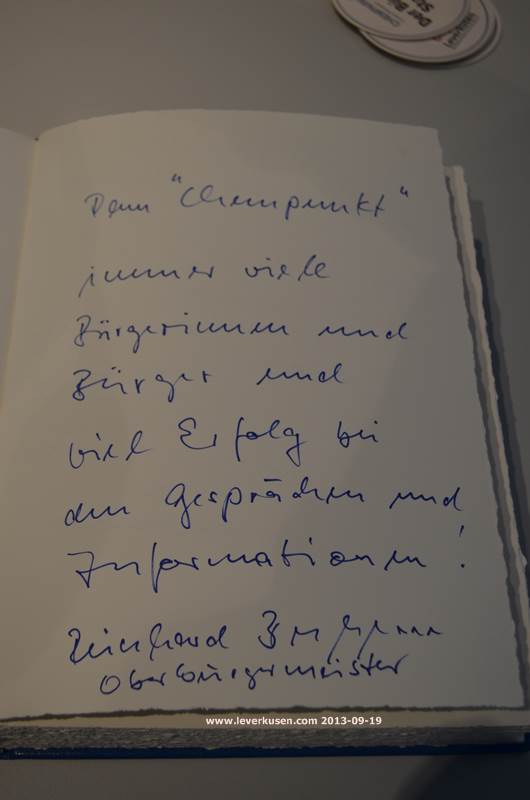 Leverkusen
Dem "Chempunkt"
immer viele
Bürgerinnen und
Bürger und
viel Erfolg bei
den Gesprächen und
Informationen!
Reinhard
Oberbürgermeister
www.leverkusen.com 2013-09-19